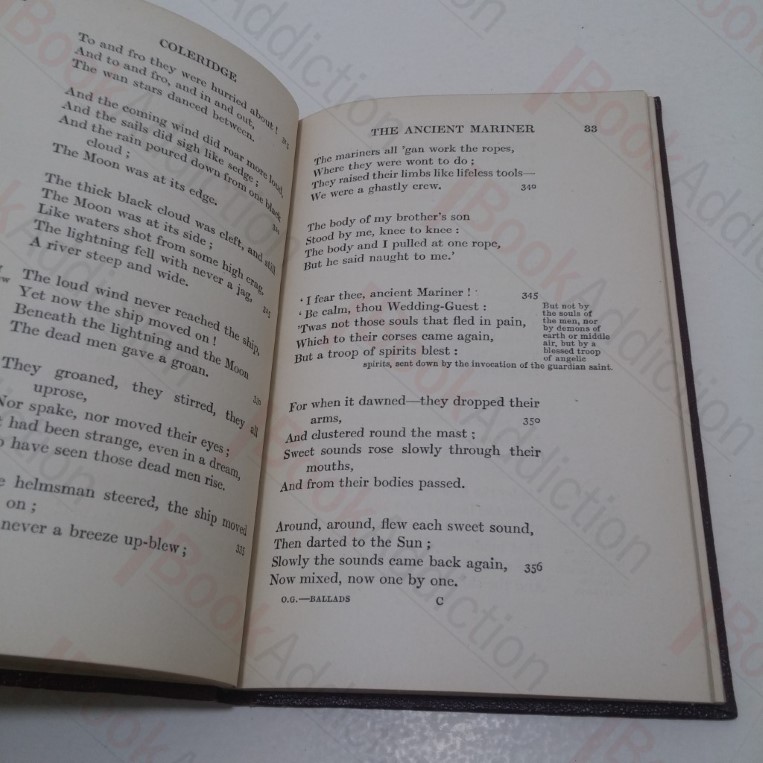 COLERIDGE
To and fro they were hurried about!
And to and fro, and in and out,
The wan stars danced between.
And the coming wind did roar more loud,
And the sails did sigh like sedge;
And the rain poured down from one black
cloud;
The Moon was at its edge.
The thick black cloud was cleft, and still
The Moon was at its side;
Like waters shot from some high crag,
The lightning fell with never a jag,
A river steep and wide.
The loud wind never reached the ship,
Yet now the ship moved on!
Beneath the lightning and the Moon
The dead men gave a groan.
They groaned, they stirred, they all
uprose,
Nor spake, nor moved their eyes;
had been strange, even in a dream,
have seen those dead men rise.
helmsman steered, the ship moved
on;
never a breeze up-blew; 335
THE ANCIENT MARINER 33
The mariners all 'gan work the ropes,
Where they were wont to do;
They raised their limbs like lifeless tools—
We were a ghastly crew. 340
The body of my brother's son
Stood by me, knee to knee:
The body and I pulled at one rope,
But he said naught to me.'
'I fear thee, ancient Mariner! 345
'Be calm, thou Wedding-Guest:
'Twas not those souls that fled in pain,
Which to their corses came again,
But a troop of spirits blest:
But not by
the souls of
the men, nor
by demons of
earth or middle
air, but by a
blessed troop
of angelic
spirits, sent down by the invocation of the guardian saint.
For when it dawned—they dropped their
arms, 350
And clustered round the mast;
Sweet sounds rose slowly through their
mouths,
And from their bodies passed.
Around, around, flew each sweet sound,
Then darted to the Sun;
Slowly the sounds came back again, 356
Now mixed, now one by one.
O.G.—BALLADS C
iBookAddiction